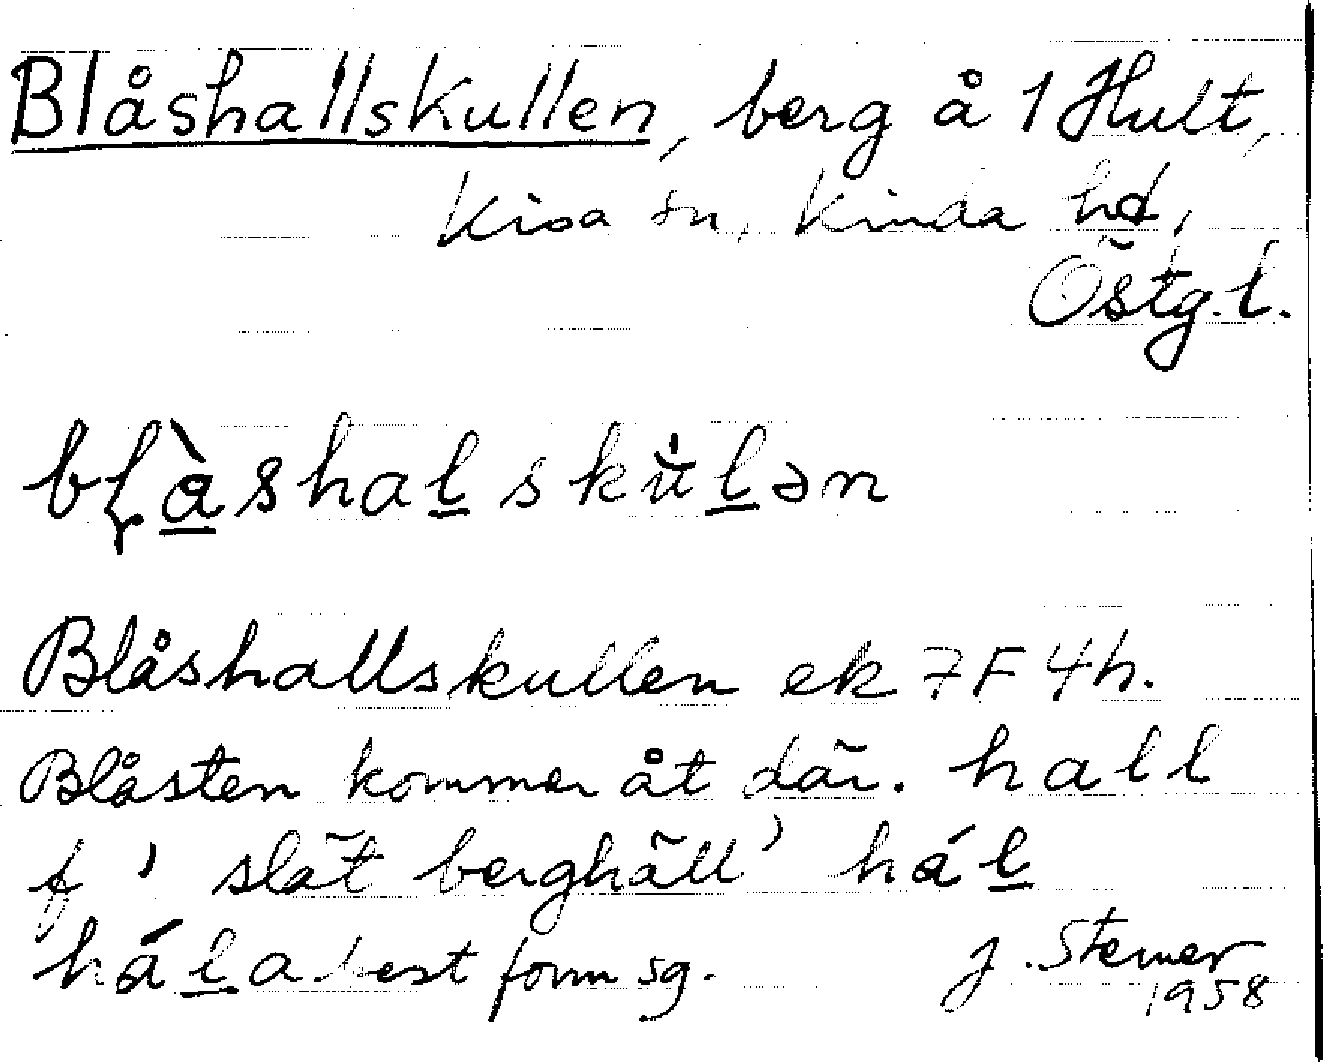 Blåshallskullen, berg å 1 Hult,
Kisa sn, Kinda hd,
Östg.l.
bḷà̱shal̲skùl̲ən
Blåshallskullen ek 7F 4h.
Blåsten kommer åt där. hall
f 'slät berghäll' hál̲
hál̲a best form sg. J. Sterner
1958